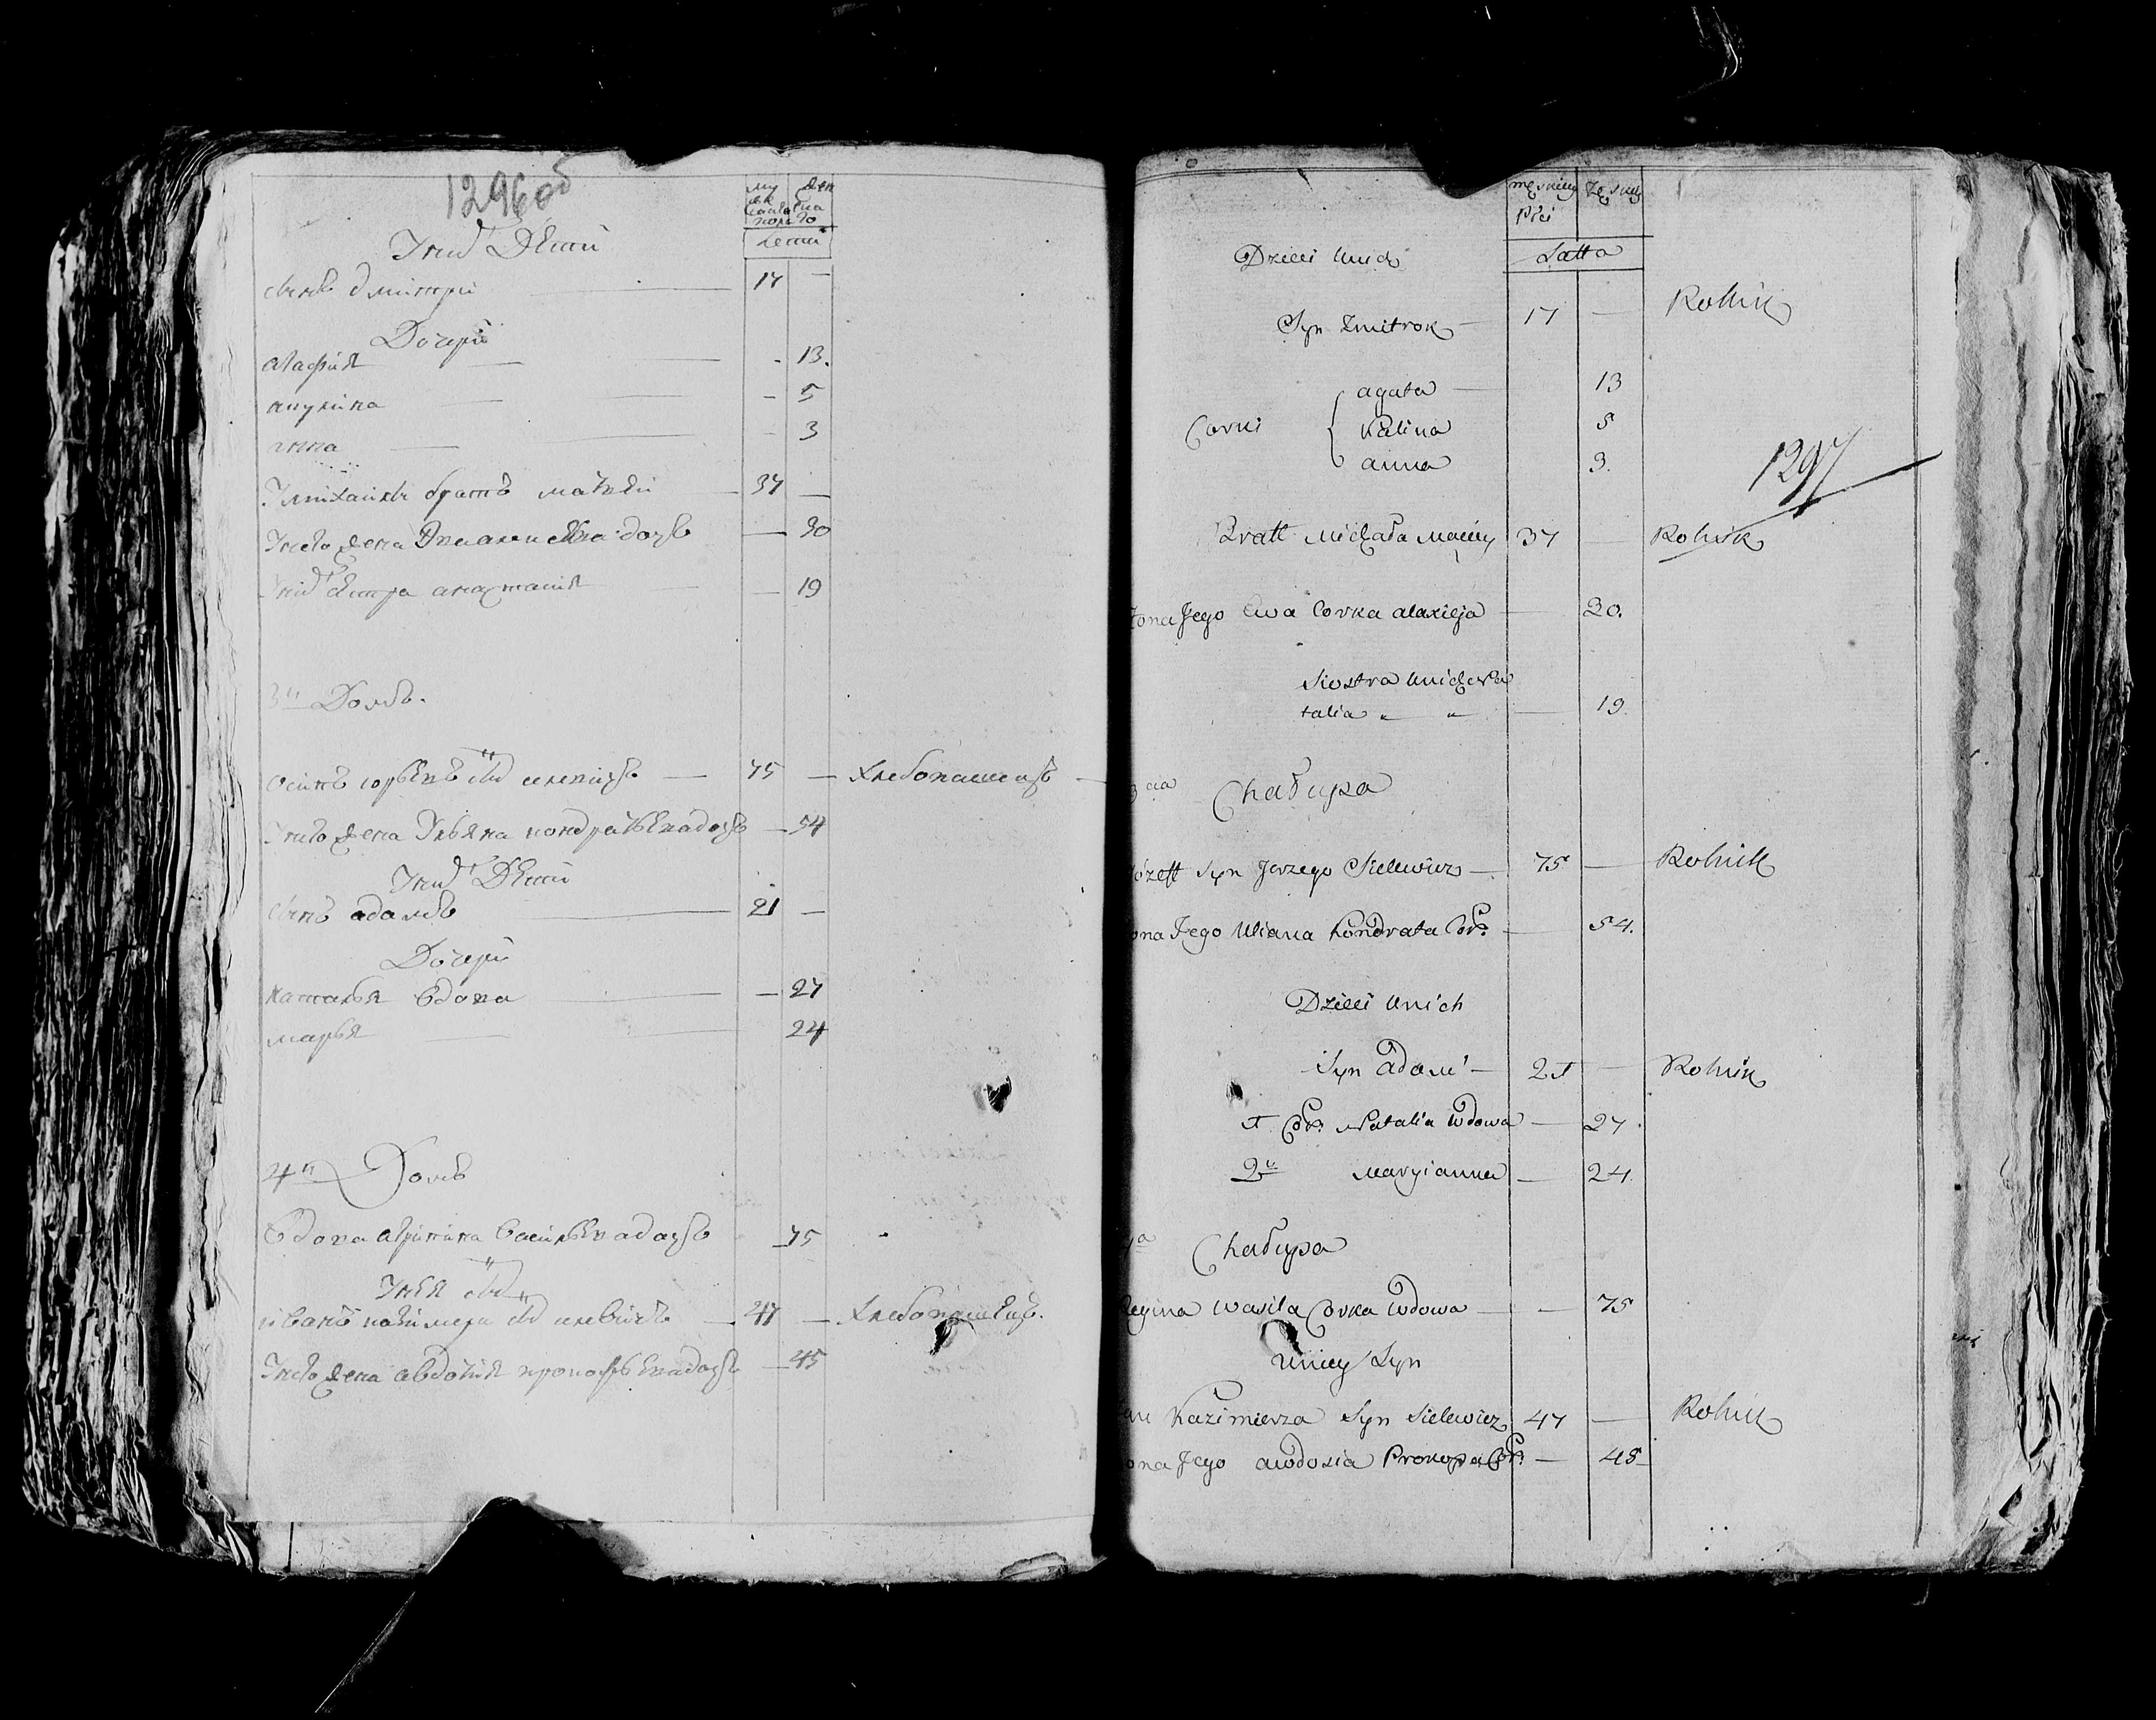 1296об
му жеска пола
жен ска го
Лета
У них Дети
сынъ дмитрий 17 —
Дочери
агафия - 13.
акулина - 5
анна - 3
У михайлы братъ матвей 37 —
У него жена алексеева дочь — 30
У них сестра анастасия — 19
3й Домъ.
Осипъ юрьевъ сынъ — 75 — Хлебопашецъ
У него жена Ульяна кондратьева дочь — 54
У них Дети
сынъ адамъ 21 —
Дочери
наталья вдова — 27
марья 24
4й Домъ
Вдова васильева дочь — 75
У нея сынъ
иванъ казимера сынъ 47 — Хлебопашецъ.
У него жена авдотия прокофьева дочь — 45
męskiey Płci
Żęskiey
Latta
Dzieci Unich
Syn Zmitrok — 17 — Rolnik
agata — 13
Corki Kalina 5
anna 3.
1297
Bratt Michała Maciey 37 — Rolnik
Żona Jego Ewa Corka alaxieja — 30.
Siostra Unich
talia " " — 19.
3cia Chałupa
Józeff Syn Jerzego Sielewicz — 75 — Rolnik
ona Jego Uliana Kondrata Cor: — 54.
Dzieci Unich
Syn adam — 21 — Rolnik
1 Cor: Natalia Wdowa — 27.
2a Maryianna — 24.
4a Chałupa
Regina Wasila Corka Wdowa — — 75
Uniey Syn
Kazimierza Syn Sielewicz 47 — Rolnik
ona Jego awdosia Prokopa Cor: — 45